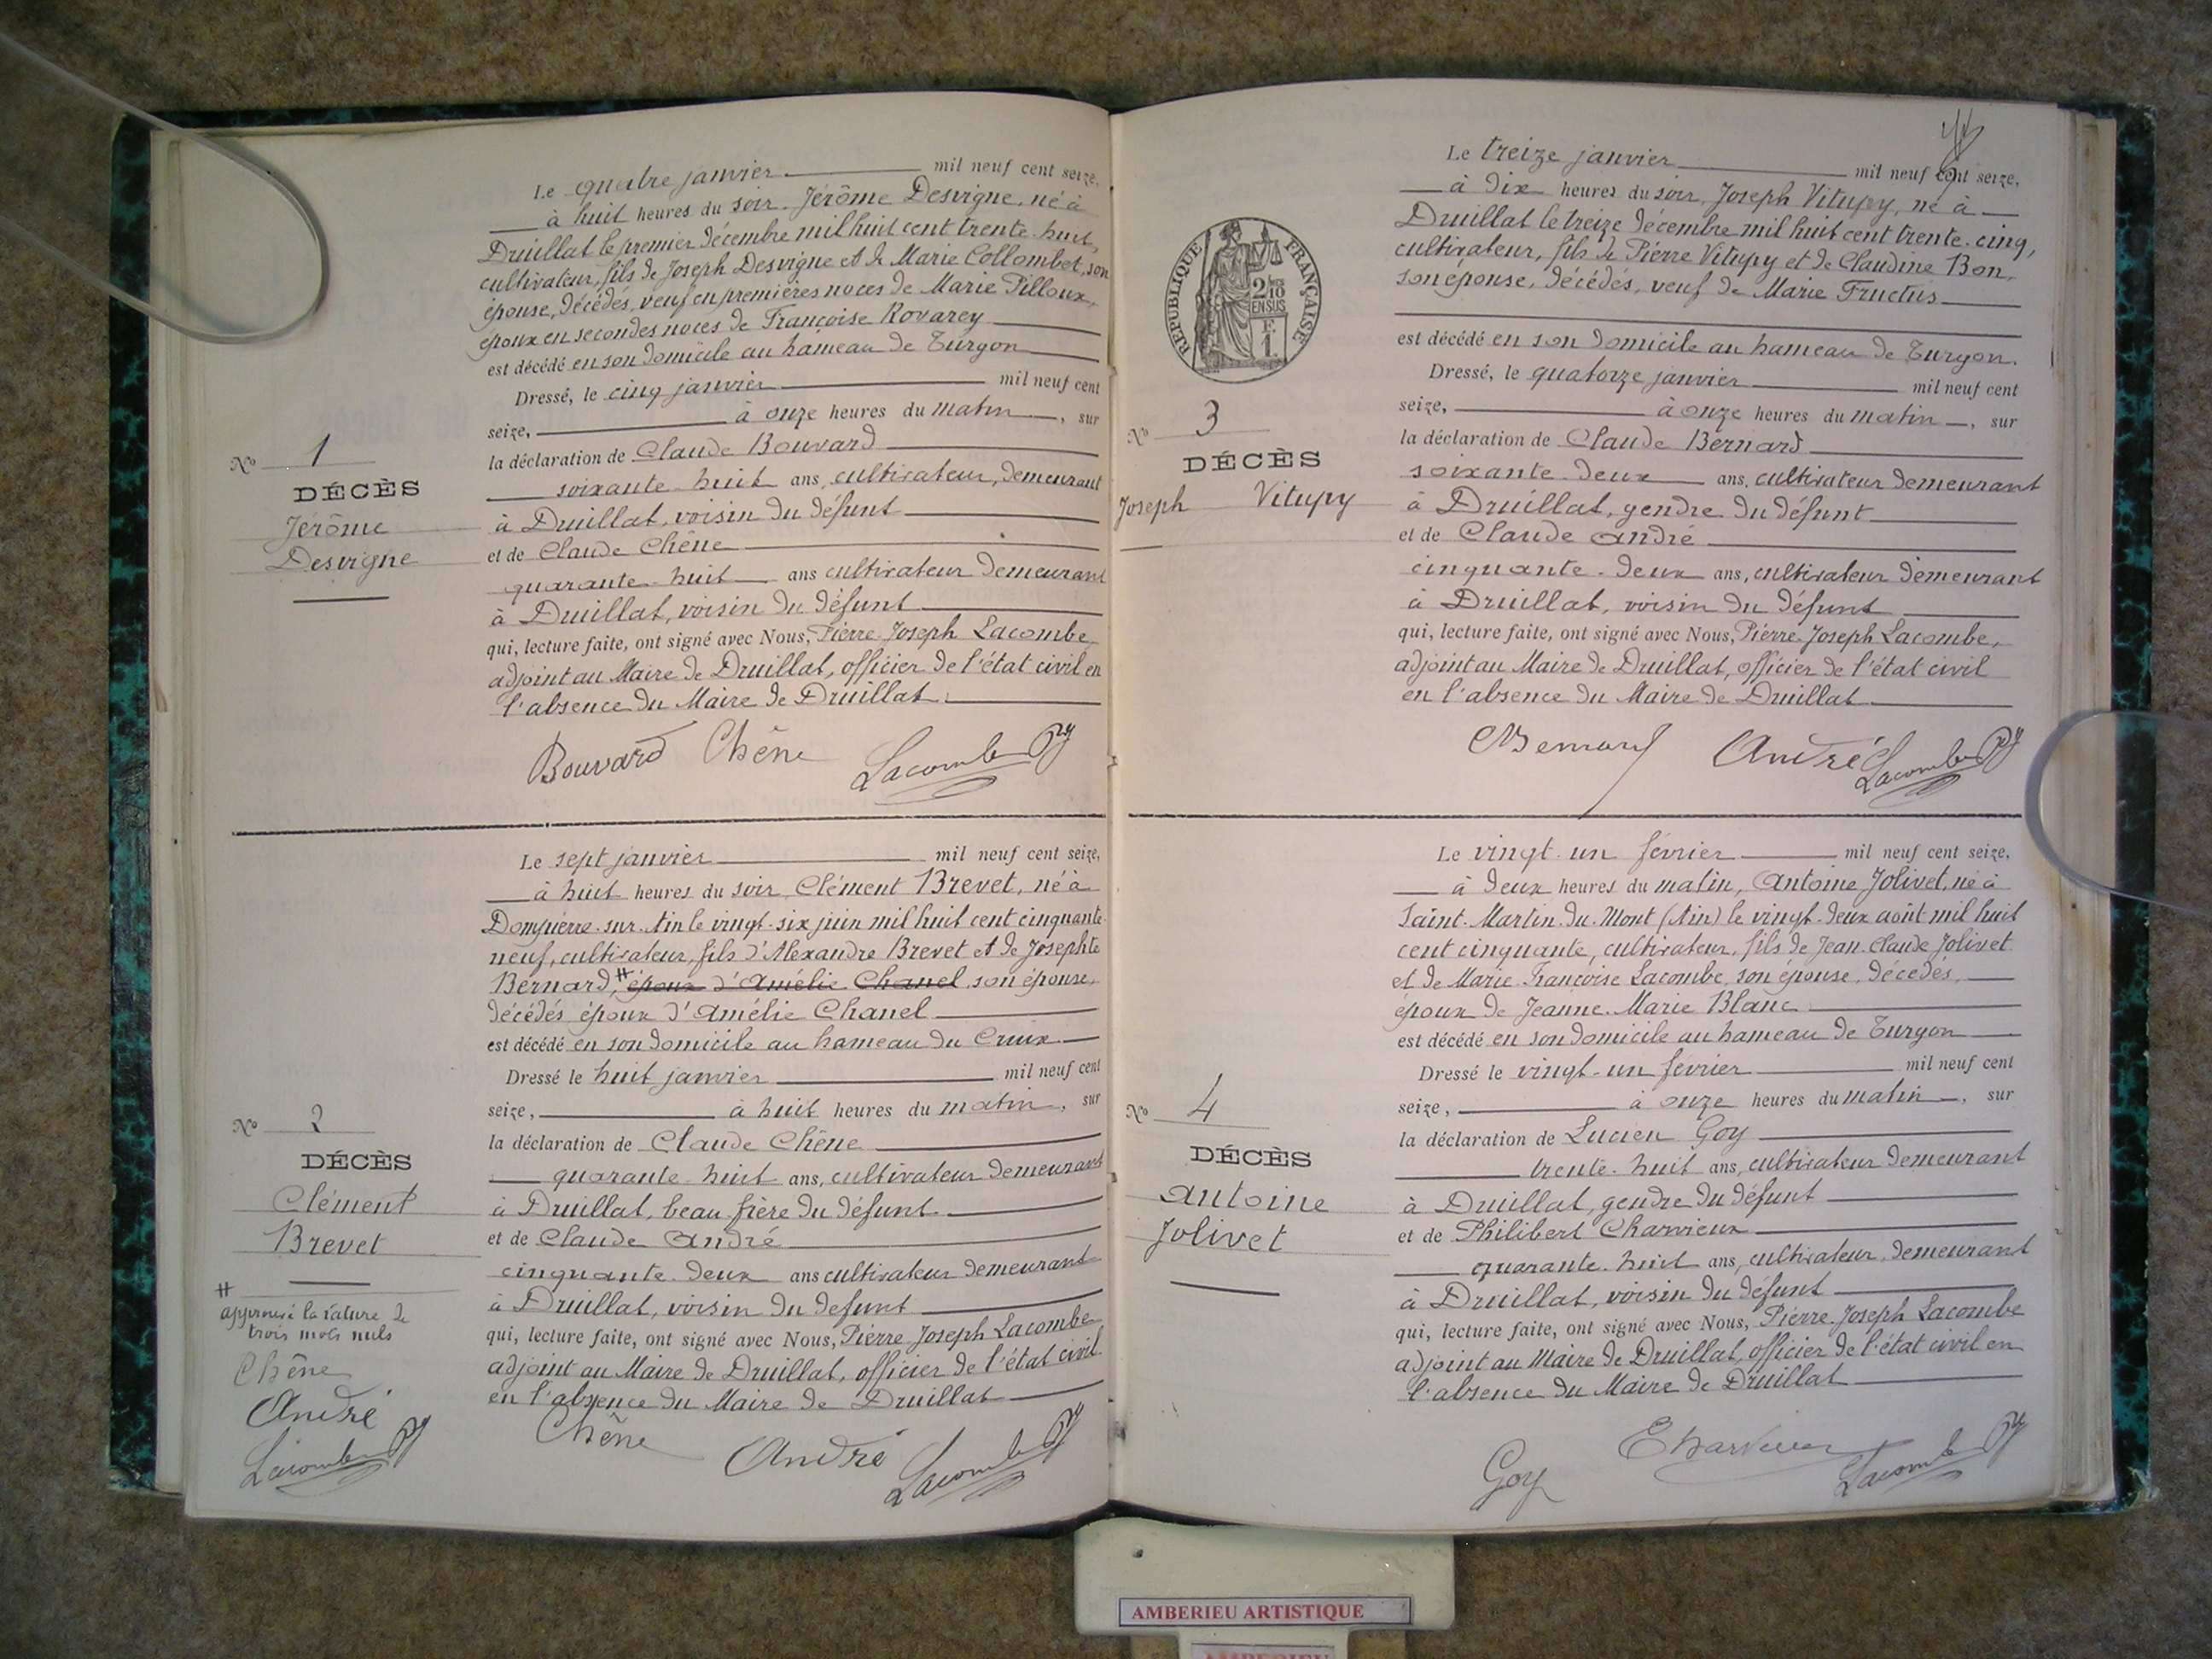 Le quatre janvier mil neuf cent seize,
à huit heures du soir, Jérôme Desvigne, né à
Druillat le premier décembre mil huit cent trente-huit,
cultivateur, fils de Joseph Desvigne et de Marie Collombet, son
épouse, décédés, veuf en premières noces de Marie Pilloux,
époux en secondes noces de Françoise Rovarey
est décédé en son domicile au hameau de Turgon
Dressé, le cinq janvier mil neuf cent
seize, à onze heures du matin, sur
la déclaration de Claude Bouvard
soixante-huit ans, cultivateur, demeurant
à Druillat, voisin du défunt
et de Claude Chêne
quarante-huit ans cultivateur demeurant
à Druillat, voisin du défunt
qui, lecture faite, ont signé avec Nous, Pierre-Joseph Lacombe,
adjoint au Maire de Druillat, officier de l'état civil en
l'absence du Maire de Druillat.
Bouvard Chêne Lacombe Py
No 1
DÉCÈS
Jérôme
Desvigne
Le sept janvier mil neuf cent seize,
à huit heures du soir, Clément Brevet, né à
Dompierre-sur-Ain le vingt-six juin mil huit cent cinquante-
neuf, cultivateur, fils d'Alexandre Brevet et de Josephte
Bernard, # époux d'Amélie Chanel, son épouse,
décédés, époux d'Amélie Chanel
est décédé en son domicile au hameau du Cruix.
Dressé le huit janvier mil neuf cent
seize, à huit heures du matin, sur
la déclaration de Claude Chêne
quarante-huit ans, cultivateur demeurant
à Druillat, beau-frère du défunt.
et de Claude André
cinquante-deux ans cultivateur demeurant
à Druillat, voisin du defunt
qui, lecture faite, ont signé avec Nous, Pierre-Joseph Lacombe
adjoint au Maire de Druillat, officier de l'état civil
en l'absence du Maire de Druillat
Chêne André Lacombe Py
No 2
DÉCÈS
Clément
Brevet
#
approuvé la rature de
trois mots nuls
Chêne
André
Lacombe Py
Le treize janvier mil neuf cent seize,
à dix heures du soir, Joseph Vitupy, né à
Druillat le treize décembre mil huit cent trente-cinq,
cultivateur, fils de Pierre Vitupy et de Claudine Bon,
son épouse, décédés, veuf de Marie Fructus
est décédé en son domicile au hameau de Turgon.
Dressé, le quatorze janvier mil neuf cent
seize, à onze heures du matin, sur
la déclaration de Claude Bernard
soixante-deux ans, cultivateur demeurant
à Druillat, gendre du défunt
et de Claude André
cinquante-deux ans, cultivateur demeurant
à Druillat, voisin du défunt
qui, lecture faite, ont signé avec Nous, Pierre-Joseph Lacombe,
adjoint au Maire de Druillat, officier de l'état civil
en l'absence du Maire de Druillat
CBernard André Lacombe Py
RÉPUBLIQUE FRANÇAISE
2/10
EN SUS
F.
1.
No 3
DÉCÈS
Joseph Vitupy
Le vingt-un février mil neuf cent seize,
à deux heures du matin, Antoine Jolivet, né à
Saint-Martin-du-Mont (Ain) le vingt-deux août mil huit
cent cinquante, cultivateur, fils de Jean-Claude Jolivet
et de Marie-Françoise Lacombe, son épouse, décédés,
époux de Jeanne-Marie Blanc
est décédé en son domicile au hameau de Turgon
Dressé le vingt-un février mil neuf cent
seize, à onze heures du matin, sur
la déclaration de Lucien Goy
trente-huit ans, cultivateur demeurant
à Druillat, gendre du défunt
et de Philibert Charvieux
quarante-huit ans, cultivateur demeurant
à Druillat, voisin du défunt
qui, lecture faite, ont signé avec Nous, Pierre-Joseph Lacombe
adjoint au Maire de Druillat, officier de l'état civil en
l'absence du Maire de Druillat
Goy Charvieux Lacombe Py
No 4
DÉCÈS
Antoine
Jolivet
AMBERIEU ARTISTIQUE
AMBERIEU